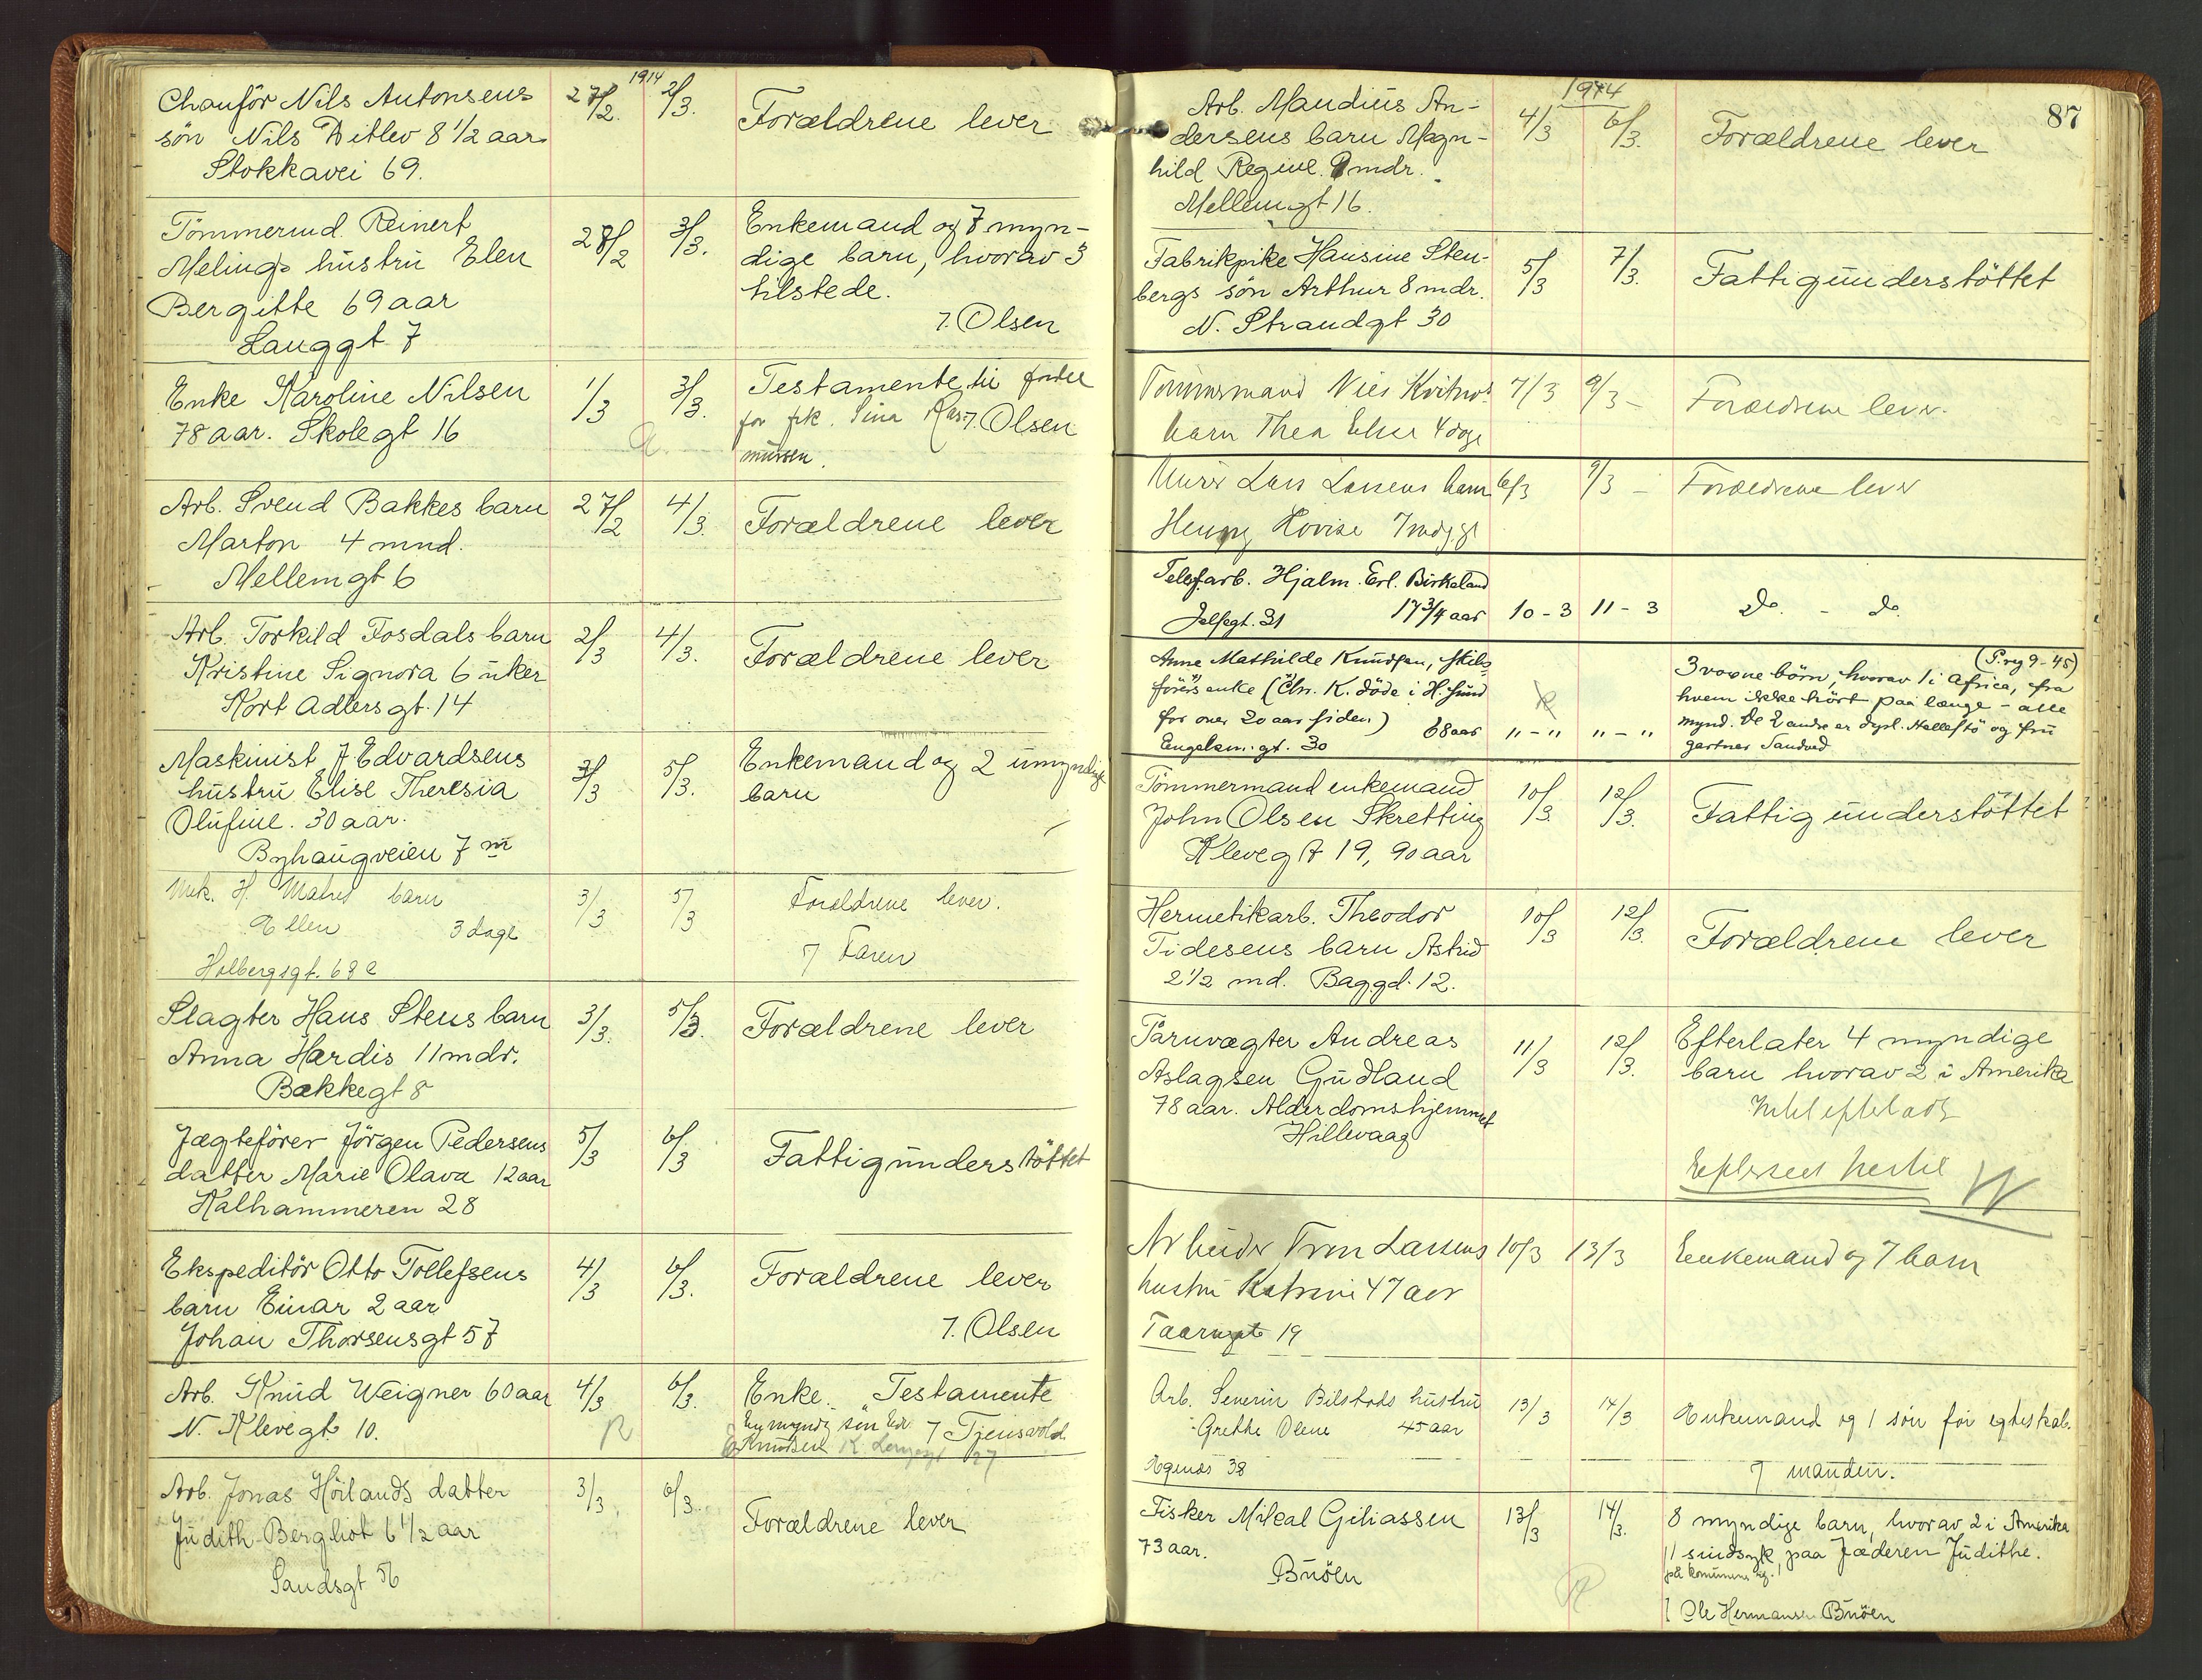 1914
Chauför Nils Antonsens 27/2. 2/3. Forældrene lever
sön Nils Ditlev 8 1/2 aar
Stokkavei 69.
Tömmermd. Reinert 28/2 3/3. Enkemand og 7 myn-
Melings hustru Elen dige barn, hvorav 3
Bergitte 69 aar tilstede.
Langgt 7 7. Olsen
Enke Karoline Nilsen 1/3 3/3. Testamente til fordel
78 aar. Skolegt 16 for frk. Sina Ras- 7. Olsen
mussen.
Arb. Svend Bakkes barn 27/2 4/3. Forældrene lever
Marton 4 mnd.
Mellemgt 6
Arb. Torkild Fosdals barn 2/3 4/3. Forældrene lever
Kristine Signora 6 uker
Kort Adlersgt. 14
Maskinist J Edvardsens 3/3 5/3. Enkemand og 2 umyndige
hustru Elise Theresia barn
Olufine. 30 aar.
Byhaugveien 7 m
Mek. H. barn 3/3 5/3 Forældrene lever.
Ellen 3 dage
Holbergsgt. 68 e 7 Faren
Slagter Hans Stens barn 3/3. 5/3. Forældrene lever
Anna Hardis 11 mdr.
Bakkegt 8
Jægtefører Jörgen Pedersens 5/3 6/3 Fattigunderstöttet
datter Marie Olava 12 aar
Kalhammeren 28
Ekspeditör Otto Tollefsens 4/3 6/3. Forældrene lever
barn Einar 2 aar
Johan Thorsensgt 57 7. Olsen
Arb. Knud Weigner 60 aar 4/3 6/3. Enke. Testamente
N. Klevegt 10. En myndig sön Edv. 7 Tjensvold
Knudsen 27
Arb. Jonas Höilands datter 3/3. 6/3. Forældrene lever
Judith Berghot 6 1/2 aar
Sandsgt 56
87
1914
Arb. Maudius An- 4/3 6/3. Forældrene lever
dersens barn Magn-
hild Regine. 9 mdr.
Mellemgt 16.
Fabrikpike Hansine Sten- 5/3 7/3. Fattigunderstöttet
bergs sön Arthur 8 mdr.
N. Strandgt 30
Tömmermand Nils 7/3 9/3 - Forældrene lever.
barn Thea Else 4 dage
Murer Lars Larsens barn 6/3 9/3 - Forældrene lever
Henny Lovise
Telegf.arb. Hjalm. Erl. Birkeland
Jelsegt. 31 17 3/4 aar 10 - 3 11 - 3 Do. - do.
Anne Mathilde Knudsen, skibs- (P.reg 9-45)
förers enke (Chr. K. döde i H.sund 3 voxne börn, hvorav 1 i Africa, fra
for over 20 aar siden) 68 aar " - " " - " hvem ikke hört paa længe - alle
Engelsm.gt. 30 mynd. De 2 andre er dypl. Hellestö og fru
gartner Sandved
Tömmermand enkemand 10/3. 12/3. Fattigunderstöttet
John Olsen Skretting
Klevegt 19, 90 aar
Hermetikarb. Theodor 10/3 12/3. Forældrene lever
Tidesens barn Astrid
2 1/2 md. Baggd. 12.
Taarnvægter Andreas 11/3 12/3. Efterlater 4 myndige
Aslagsen Gudland barn hvorav 2 i Amerika
78 aar. Alderdomshjemmet Intet efterladt
Hillevaag
Arbeider Tron Larsens 10/3 13/3 Enkemand og 7 barn
hustru Katrine 47 aar
Taarngt 19
Arb. Severin Bilstads hustru 13/3 14/3 Enkemand og 1 sön för egteskab.
Grethe Olene 45 aar
Øgends 38 7 manden.
Fisker Mikal Giliassen 13/3 14/3. 8 myndige barn, hvorav 2 i Amerika
73 aar. 1 sindsyk, paa Jæderen Judithe.
Buöen på kommunens regn.
Ole Hermansen Buöen